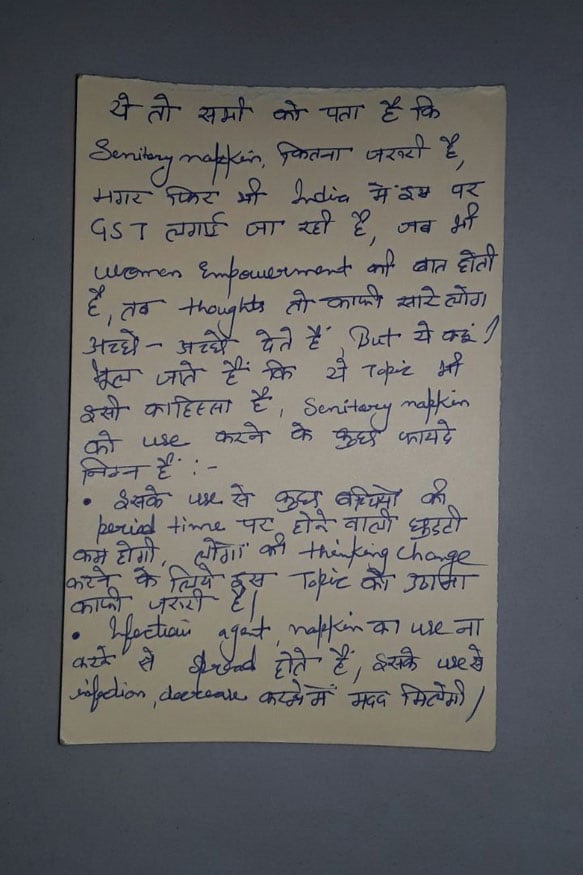 ये तो सभी को पता है कि
Senitary napkin, कितना जरुरी है,
मगर फिर भी India में इस पर
GST लगाई जा रही है, जब भी
women Empowerment की बात होती
है, तब thoughts तो काफी सारे लोग
अच्छे - अच्छे देते हैं, But ये कहं
भूल जाते हैं कि ये Topic भी
इसी का हिस्सा है, Senitary napkin
को use करने के कुछ फायदे
निम्न हैं :-
• इसके use से कुछ बच्चियों की
period time पर होने वाली छुट्टी
कम होगी, लोगों की thinking change
करने के लिये इस Topic को उठाना
काफी जरुरी है।
• Infection agent, napkin का use ना
करने से spread होते हैं, इसके use से
infection, decrease करने में मदद मिलेगी।